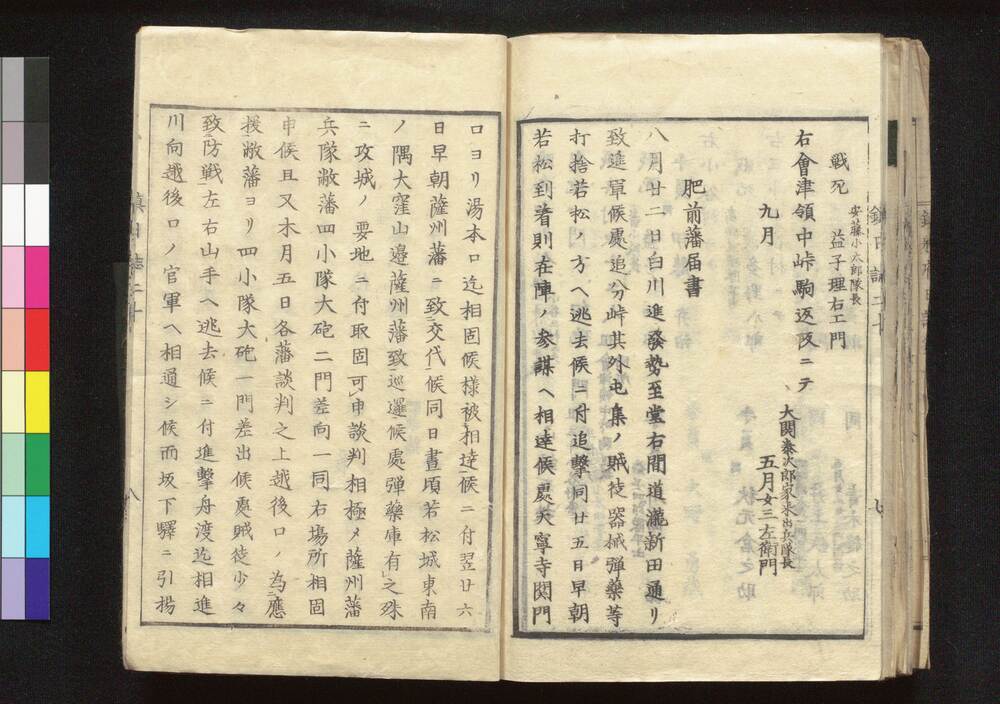 戦死
安藤小太郎隊長
益子理右エ門
右會津領中峠駒返坂ニテ
大関泰次郎家来出兵隊長
九月
五月女三左衛門
肥前藩届書
八月廿二日白川進發勢至堂右間道瀧新田通リ
致進軍候處追分峠其外屯集ノ賊徒器械弾藥等
打捨若松ノ方ヘ逃去候ニ付追撃同廿五日早朝
若松到着則在陣ノ参謀ヘ相達候處天寧寺関門
口ヨリ湯本口迄相固候様被相達候ニ付翌廿六
日早朝薩州藩ニ致交代候同日晝頃若松城東南
ノ隅大窪山邊薩州藩致巡邏候處弾藥庫有之殊
ニ攻城ノ要地ニ付取固可申談判相極メ薩州藩
兵隊敝藩四小隊大砲二門差向一同右場所相固
申候且又本月五日各藩談判之上越後口ノ為應
援敝藩ヨリ四小隊大砲一門差出候處賊徒少々
致防戦左右山手ヘ逃去候ニ付進撃舟渡迄相進
川向越後口ノ官軍ヘ相通シ候而坂下驛ニ引揚
鎮日誌二十
八